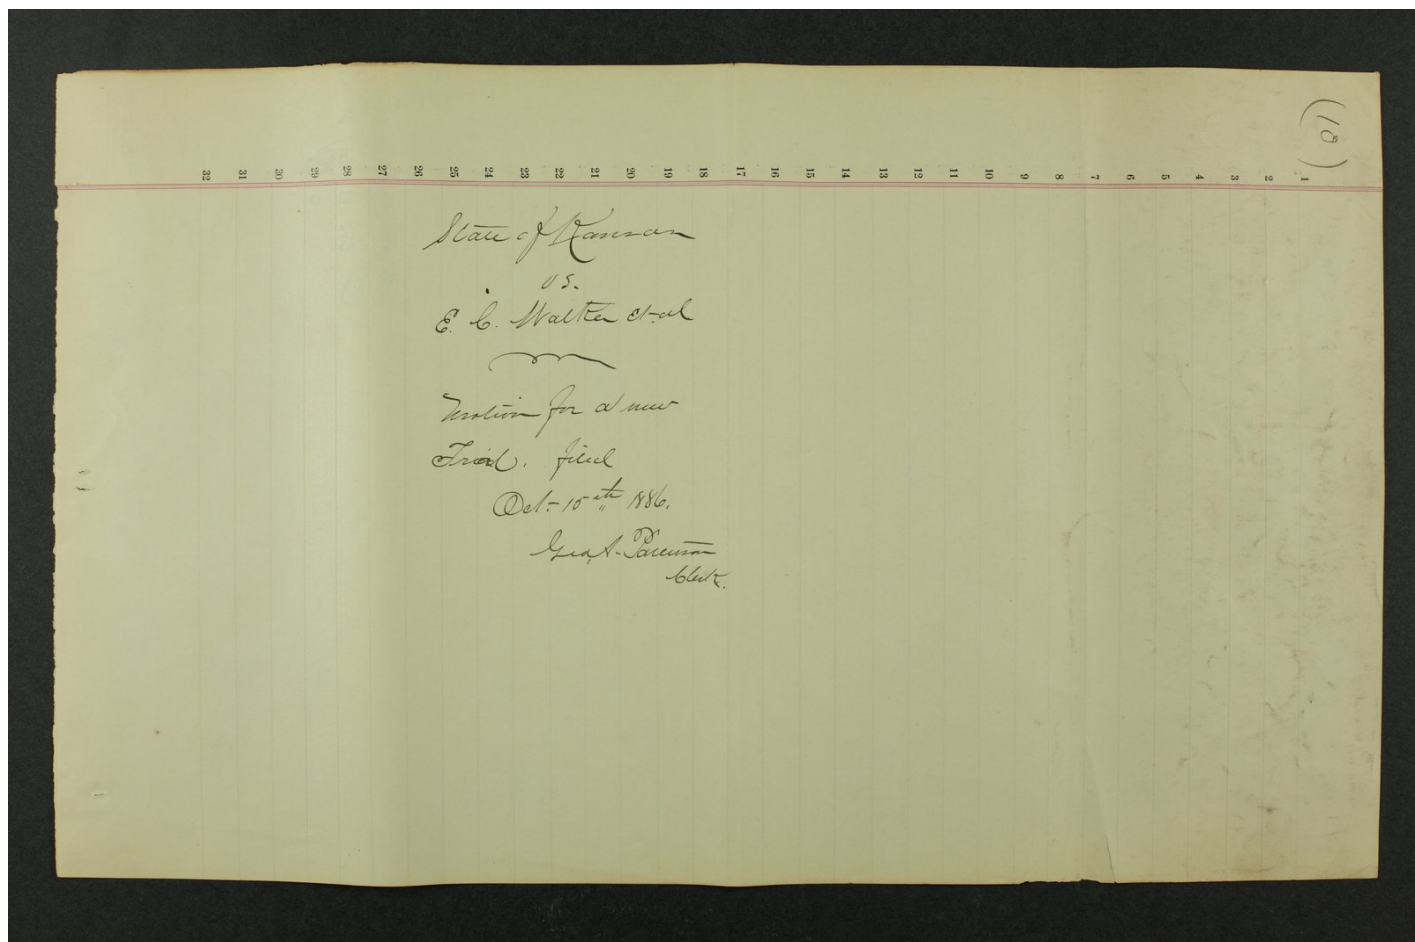 (10)
32 31 30 29 28 27 26 25 24 23 22 21 20 19 18 17 16 15 14 13 12 11 10 9 8 7 6 5 4 3 2 1
State of Kansas
vs.
E. C. Walker et al
Motion for a new
Trial. filed
Oct. 15th 1886.
Geo. A.
Clerk.